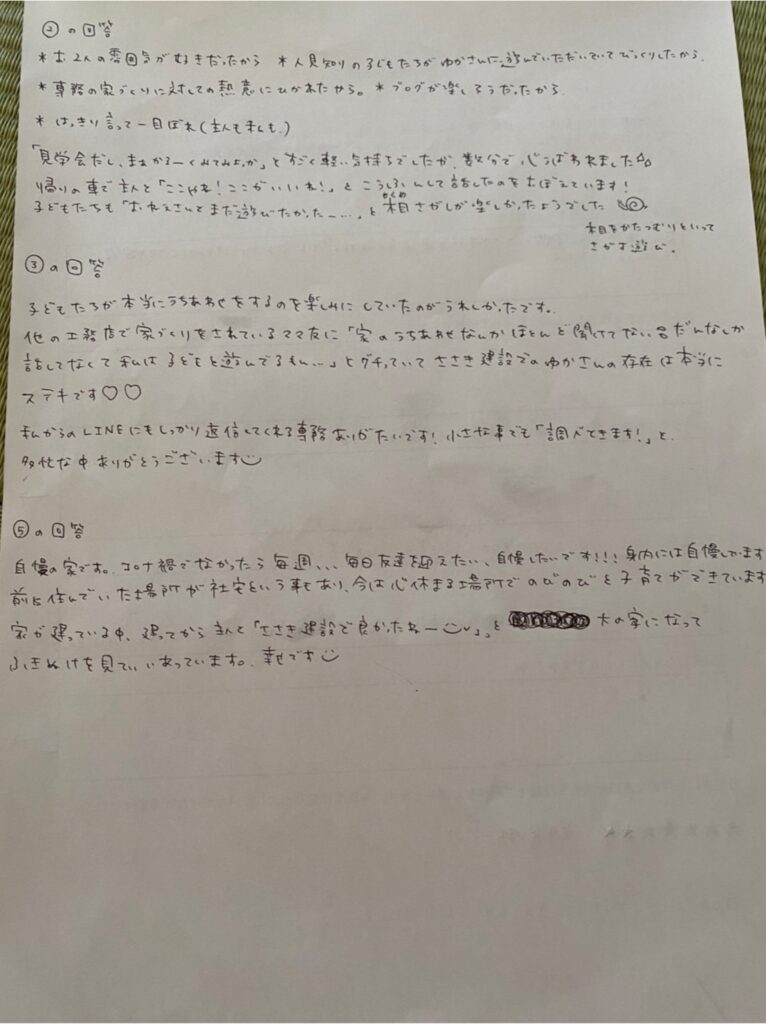 ②の回答
*お2人の雰囲気が好きだったから *人見知りの子どもたちがゆかさんに遊んでいただいていてびっくりしたから.
*専務の家づくりに対しての熱意にひかれたから。*ブログが楽しそうだったから.
*はっきり言って一目ぼれ(主人も私も.)
「見学会だし、まぁかるーくみてみよか」とすごく軽い気持ちでしたが、数分で心うばわれました☆☆
帰りの車で主人と「ここやね!ここがいいね!」とこうふんして話したのをおぼえています!
子どもたちも「おねえさんとまだ遊びたかった……」と相さがしが楽しかったようでした
相をかたつむりといって
さがす遊び.
③の回答
子どもたちが本当にうちあわせをするのを楽しみにしていたのがうれしかったです。
他の工務店で家づくりをされているママ友に「家のうちあわせなんかほとんど聞けてない だんなしか
話してなくて私は子どもと遊んでるもん…」とグチっていてささき建設でのゆかさんの存在は本当に
ステキです♡♡
私からのLINEにもしっかり返信してくれる専務ありがたいです!小さな事でも「調べときます!」と.
多忙な中ありがとうございます
⑤の回答
自慢の家です。コロナ禍でなかったら毎週、、、毎日友達を迎えたい、自慢したいです!!!身内には自慢しています
前に住んでいた場所が社宅という事もあり、今は心休まる場所でのびのびと子育てができています
家が建っている中、建ってから主人と「ささき建設で良かったねー」。と 大の字になって
ふきぬけを見ていいあっています。幸せです